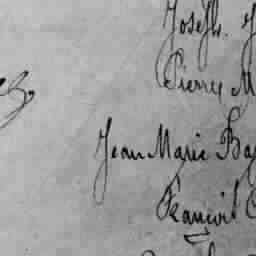 Joseph. J
Pierre M
Jean Marie Ba
François C